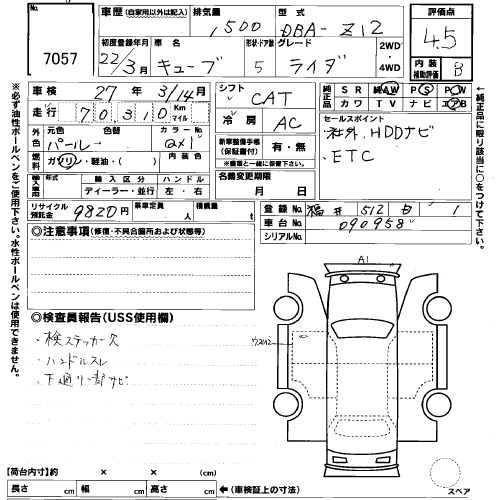 No.
7057
車歴 (自家用以外は記入)
排気量 1,500
型式 DBA-Z12
評価点
4.5
初度登録年月 22/3月
車名 キューブ
形状・ドア数 5
グレード ライダ
2WD
4WD
内装補助評価 B
車検 27年 3/14月
シフト CAT
純正品 SR AW PS PW
カワ TV ナビ エアB
走行 70,310 Km マイル
冷房 AC
セールスポイント
社外HDDナビ
ETC
外色 元色 パール 色替
カラーNo. QX1
新車整備手帳(保証書付) 有・無
※車種と一緒に保管下さい。
燃料 ガソリン・軽油・( )
内装色
輸入車用 年式 輸入区分 ハンドル
ディーラー・並行 左・右
名義変更期限
月 日
リサイクル預託金 9820円
乗車定員 人
積載量 kg
登録No. 福井 512 1
車台No. 090958
シリアルNo.
◎注意事項 (修復・不具合箇所および状態等)
◎検査員報告(USS使用欄)
・検ステッカー欠
・ハンドルスレ
・下廻り一部サビ
A1
スペア
【荷台内寸】約 × × (cm)
長さ cm 幅 cm 高さ cm ←(車検証上の寸法)
※必ず油性ボールペンをご使用下さい。水性ボールペンは使用できません。
※純正品に限り該当品に○をしめして下さい。